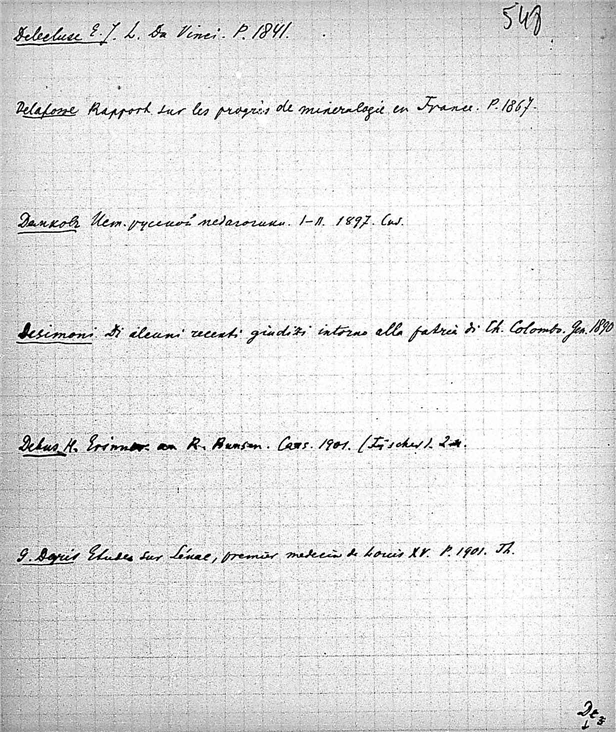 548
Delecluse E. J. L. Da Vinci. P. 1841.
Delafosse Rapport sur les progrès de mineralogie en France. P. 1867.
Демковъ Ист. русской педагогики. I–II. 1897.
Desimoni. Di alcuni recenti giudizi intorno alla patria di Ch. Colombo. Gen. 1890
Debus H. Erinner. an R. Bunsen. Cass. 1901. (Fischer).
G. Degris Etudes sur Sénac, premier medecin de Louis XV. P. 1901. Th.
De